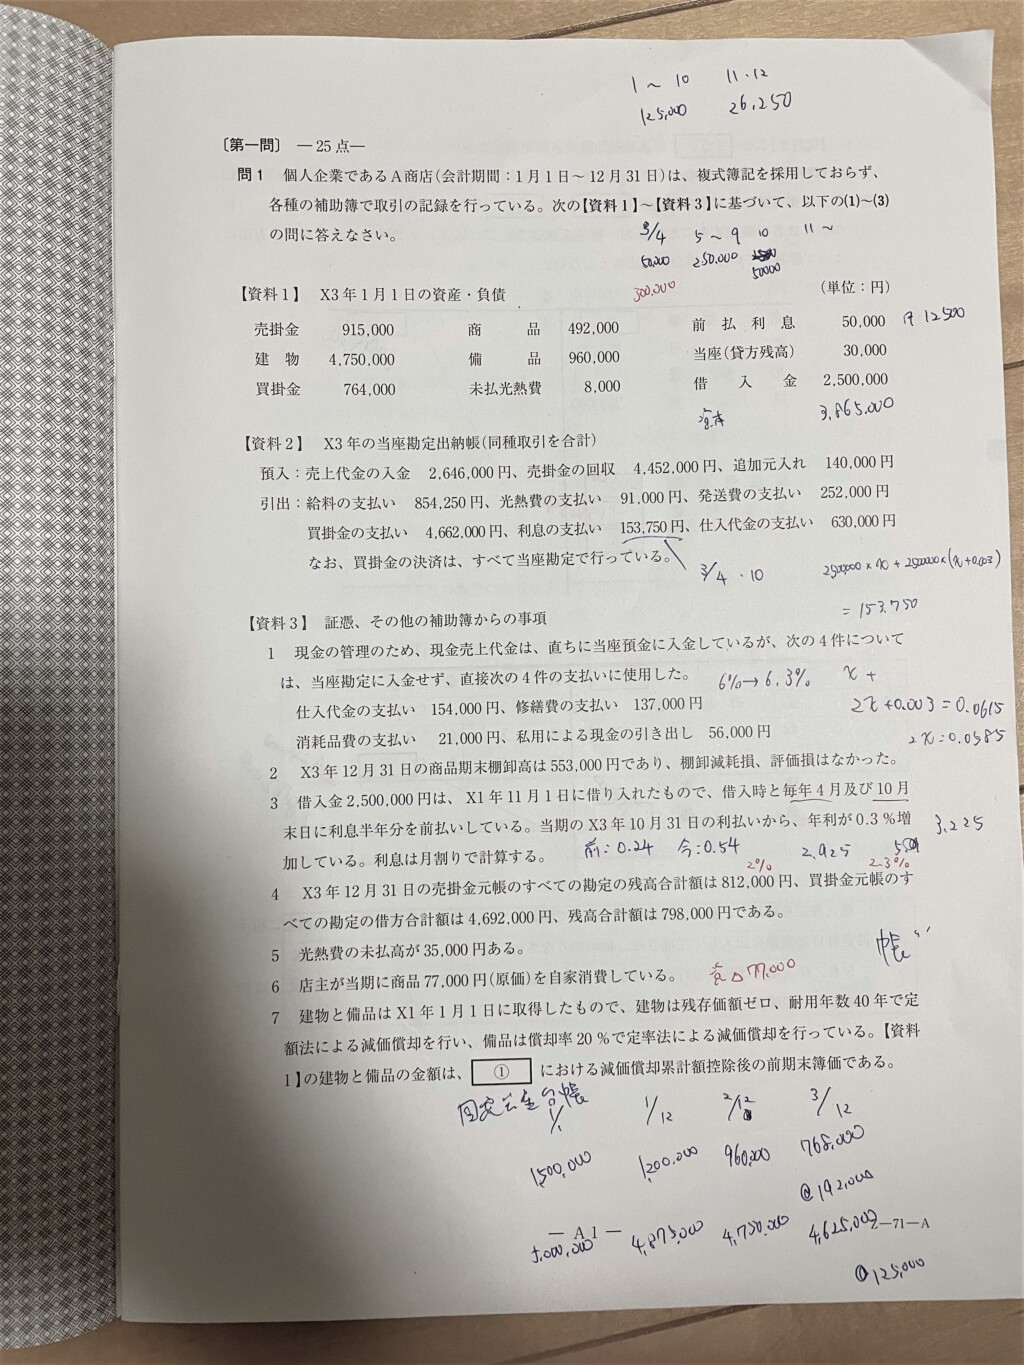 1 ～ 10 11・12
125,000 26,250
〔第一問〕 ―25 点―
問 1 個人企業であるＡ商店(会計期間：1 月 1 日～ 12 月 31 日)は、複式簿記を採用しておらず、
各種の補助簿で取引の記録を行っている。次の【資料 1】～【資料 3】に基づいて、以下の(1)～(3)
の問に答えなさい。
3/4 5 ～ 9 10 11 ～
50,000 250,000 50000
300,000
【資料 1】 X3 年 1 月 1 日の資産・負債 (単位：円)
売掛金 915,000 商品 492,000 前払利息 50,000 12500
建物 4,750,000 備品 960,000 当座(貸方残高) 30,000
買掛金 764,000 未払光熱費 8,000 借入金 2,500,000
資本 3,865,000
【資料 2】 X3 年の当座勘定出納帳(同種取引を合計)
預入：売上代金の入金 2,646,000 円、売掛金の回収 4,452,000 円、追加元入れ 140,000 円
引出：給料の支払い 854,250 円、光熱費の支払い 91,000 円、発送費の支払い 252,000 円
買掛金の支払い 4,662,000 円、利息の支払い 153,750 円、仕入代金の支払い 630,000 円
なお、買掛金の決済は、すべて当座勘定で行っている。
3/4 ・10 2500000×x + 2500000×(x+0.003)
= 153.750
【資料 3】 証憑、その他の補助簿からの事項
1 現金の管理のため、現金売上代金は、直ちに当座預金に入金しているが、次の 4 件について
は、当座勘定に入金せず、直接次の 4 件の支払いに使用した。
6%→6.3% x +
仕入代金の支払い 154,000 円、修繕費の支払い 137,000 円
2x+0.003=0.0615
消耗品費の支払い 21,000 円、私用による現金の引き出し 56,000 円
2x=0.0585
2 X3 年 12 月 31 日の商品期末棚卸高は 553,000 円であり、棚卸減耗損、評価損はなかった。
3 借入金 2,500,000 円は、X1 年 11 月 1 日に借り入れたもので、借入時と毎年 4 月及び 10 月
末日に利息半年分を前払いしている。当期の X3 年 10 月 31 日の利払いから、年利が 0.3 ％増
3,225
加している。利息は月割りで計算する。
前：0.24 今：0.54 2,925
2% 2.3%
4 X3 年 12 月 31 日の売掛金元帳のすべての勘定の残高合計額は 812,000 円、買掛金元帳のす
べての勘定の借方合計額は 4,692,000 円、残高合計額は 798,000 円である。
5 光熱費の未払高が 35,000 円ある。
帳
6 店主が当期に商品 77,000 円(原価)を自家消費している。
△77,000
7 建物と備品は X1 年 1 月 1 日に取得したもので、建物は残存価額ゼロ、耐用年数 40 年で定
額法による減価償却を行い、備品は償却率 20 ％で定率法による減価償却を行っている。【資料
1】の建物と備品の金額は、 ① における減価償却累計額控除後の前期末簿価である。
固定資産台帳
1/1 1/12 2/12 3/12
1,500,000 1,200,000 960,000 768,000
@192,000
― A 1 ― Z―71―A
5,000,000 4,875,000 4,750,000 4,625,000
@125,000